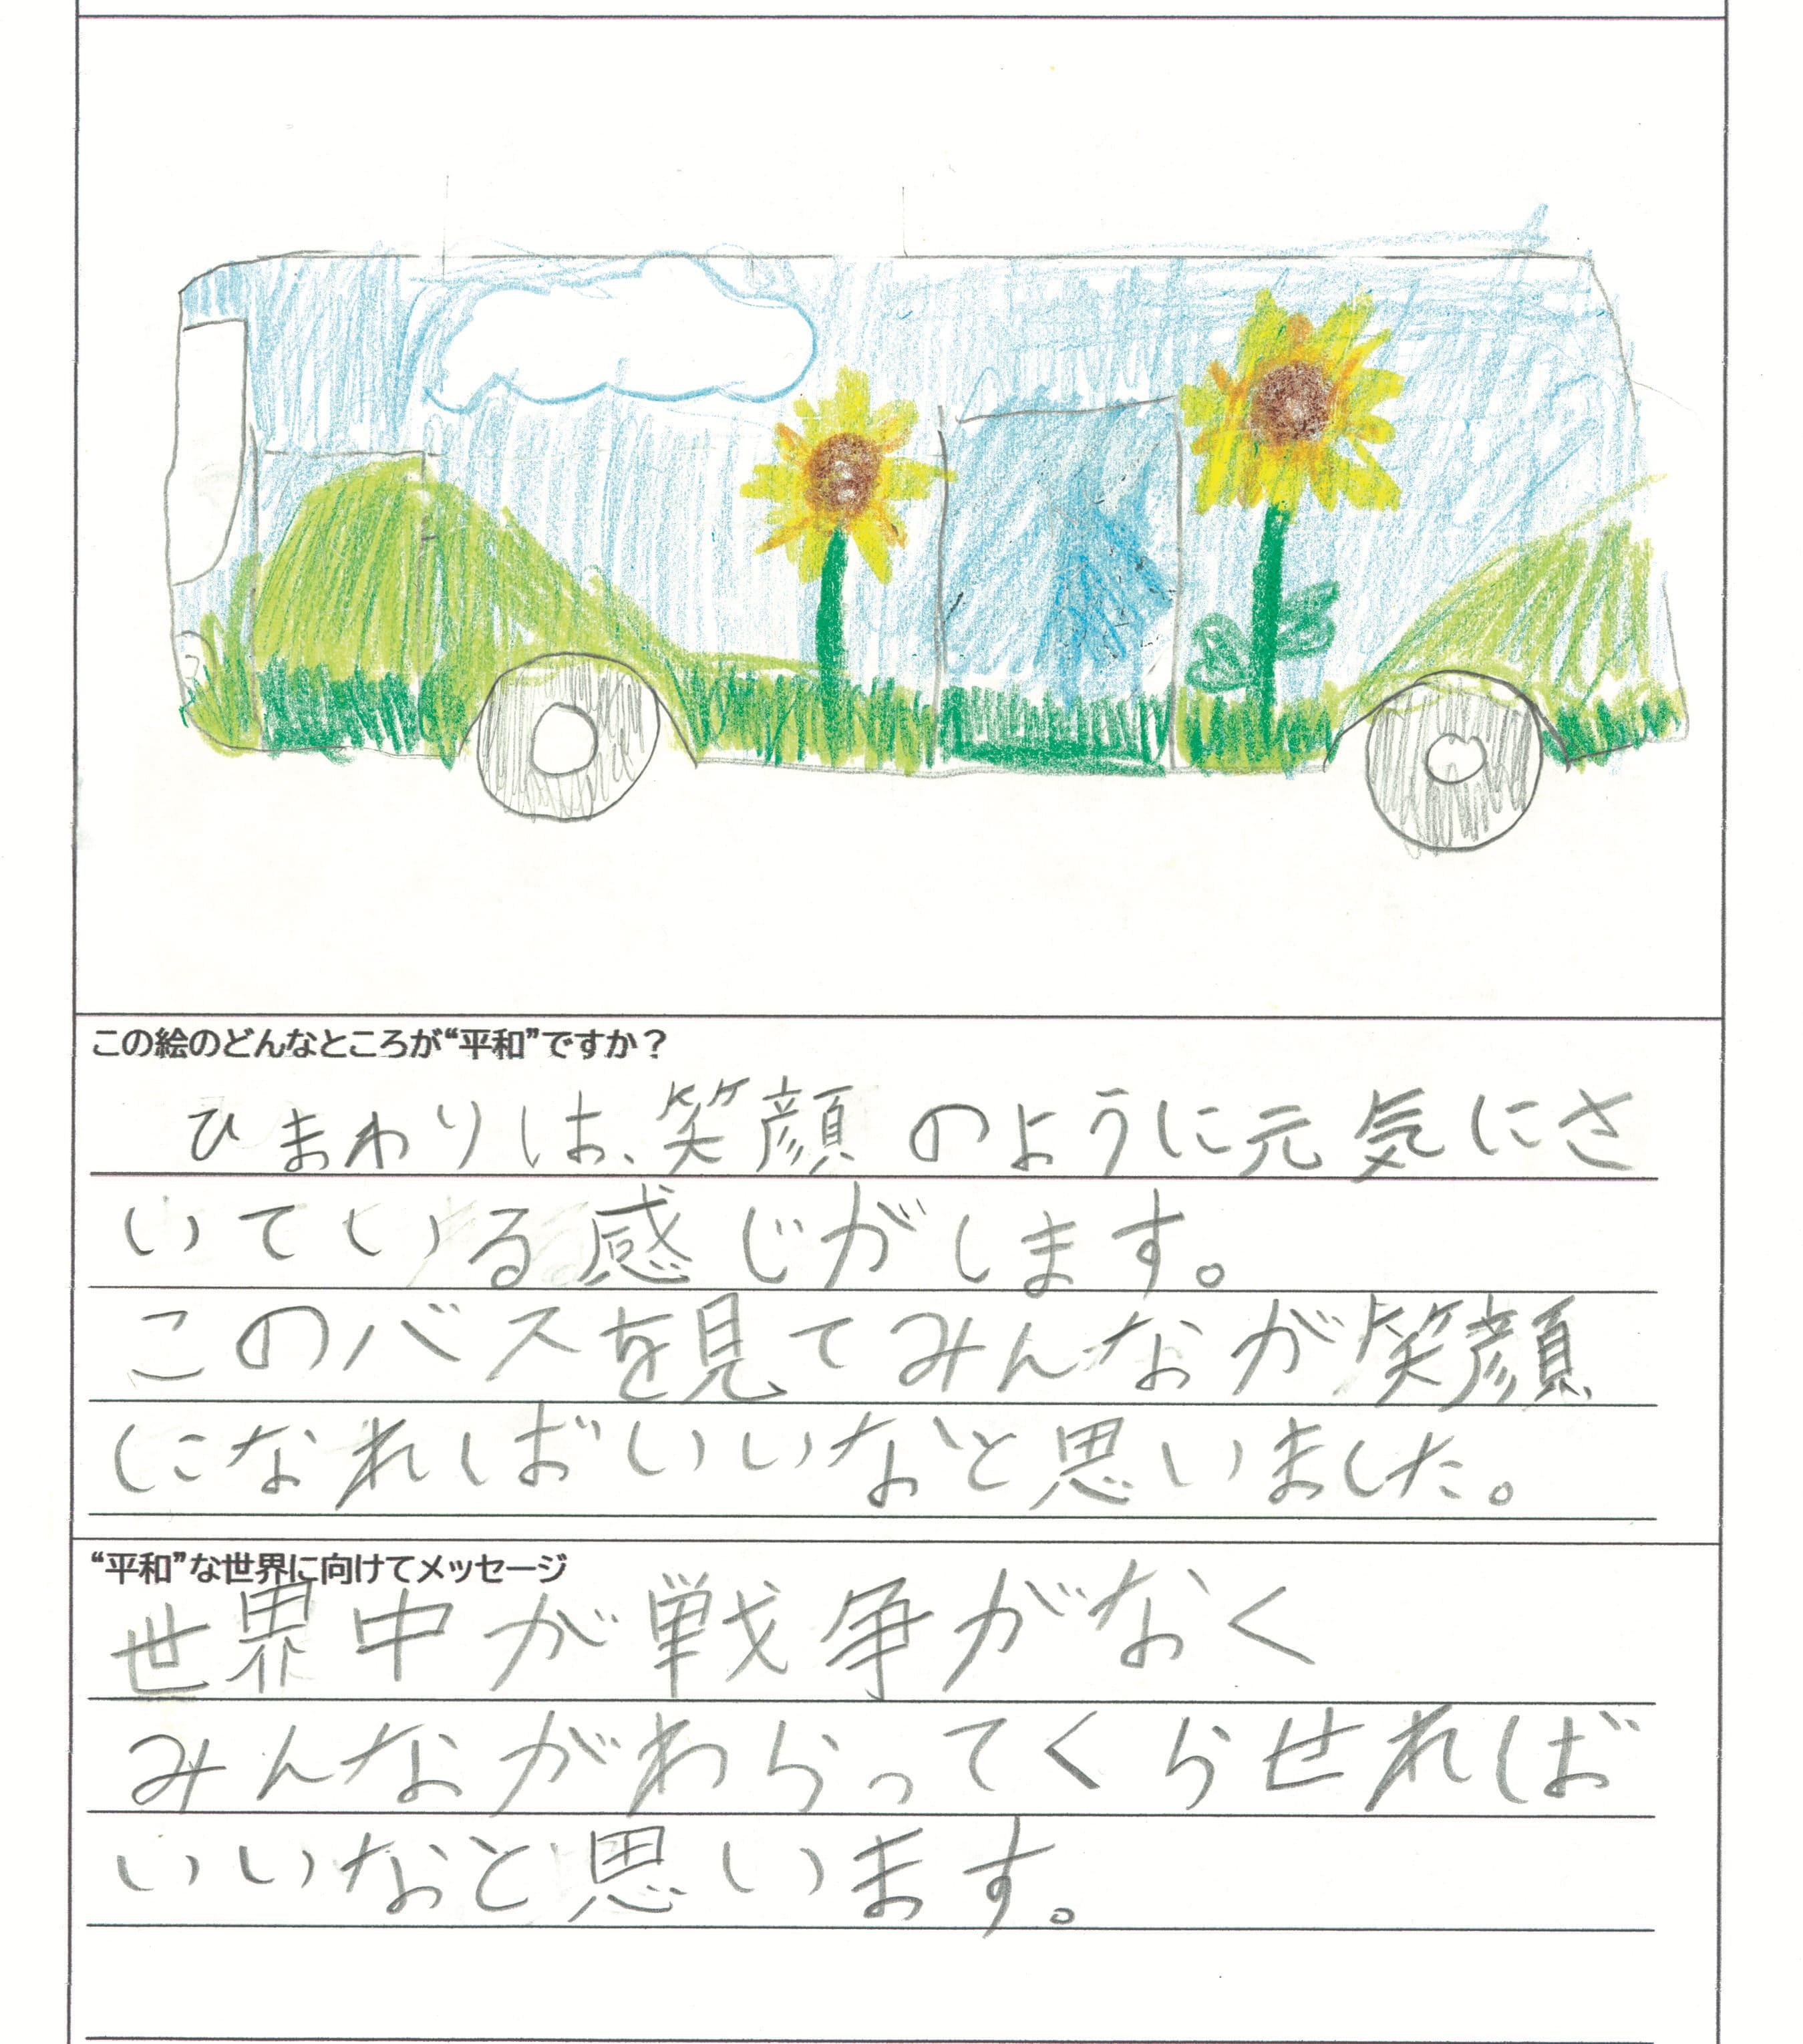 この絵のどんなところが“平和”ですか？
ひまわりは、笑顔のように元気にさ
いている感じがします。
このバスを見てみんなが笑顔
になればいいなと思いました。
“平和”な世界に向けてメッセージ
世界中が戦争がなく
みんながわらってくらせれば
いいなと思います。